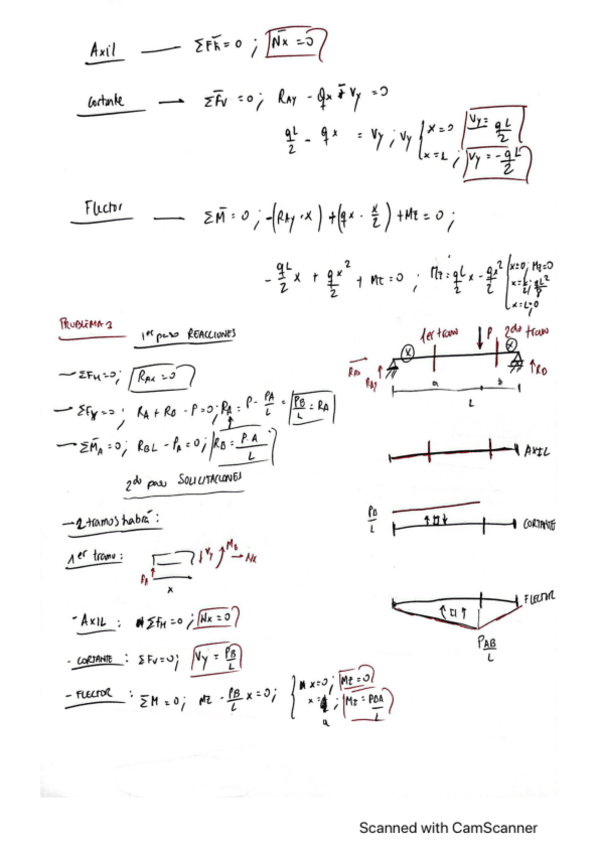 Axil — ΣFh=0 ; Nx=0
Cortante → ΣFv=0; RAy - qx - Vy=0
qL/2 - qx = Vy ; Vy { x=0 Vy= qL/2
x=L ; Vy=-qL/2
Flector — ΣM=0 ; -(RAy·x)+(qx·x/2)+Mz=0 ;
-qL/2 x + qx²/2 + Mz=0 ; Mz=qL/2 x - qx²/2 { x=0; Mz=0
x=L/2; qL²/8
x=L=0
PROBLEMA 2 1er paso REACCIONES
1er tramo P 2do tramo
x x
RAx RAy RB
a b
L
→ ΣFH=0; RAx=0
→ ΣFy=0; RA+RB-P=0; RA= P-PA/L = PB/L = RA
→ ΣMA=0; RBL-PA=0; RB= P·A/L
AXIL
2do paso SOLICITACIONES
PB/L
CORTANTE
→ 2 tramos habrá:
1er tramo: RA x Vy Mz Nx
FLECTOR
PAB/L
- AXIL : ΣFH=0; Nx=0
- CORTANTE : ΣFV=0; Vy = PB/L
- FLECTOR : ΣM=0; Mz - PB/L x=0; { x=0; Mz=0
x=a; Mz= PBA/L
Scanned with CamScanner